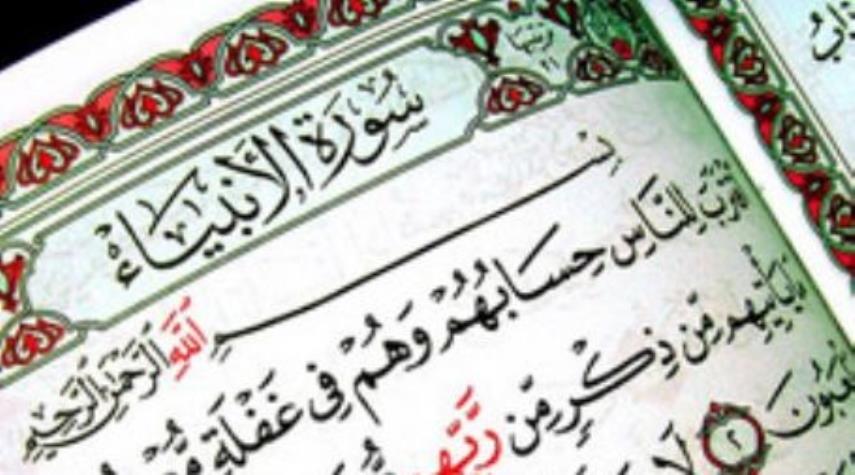 سُورَةُ الأَنبِيَاءِ
بِسْمِ اللَّهِ الرَّحْمَنِ الرَّحِيمِ
لِلنَّاسِ حِسَابُهُمْ وَهُمْ فِي غَفْلَةٍ
يَأْتِيهِم مِّن ذِكْرٍ مِّن رَّبِّهِم
٢ لَا